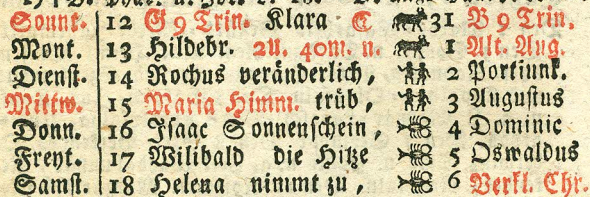 Sonnt. 12 G 9 Trin. Klara ☾ 31 B 9 Trin.
Mont. 13 Hildebr. 2u. 40m. n. 1 Alt. Aug.
Dienst. 14 Rochus veränderlich, 2 Portiunk.
Mittw. 15 Maria Himm. trüb, 3 Augustus
Donn. 16 Isaac Sonnenschein, 4 Dominic
Freyt. 17 Wilibald die Hitze 5 Oswaldus
Samst. 18 Helena nimmt zu, 6 Verkl. Chr.